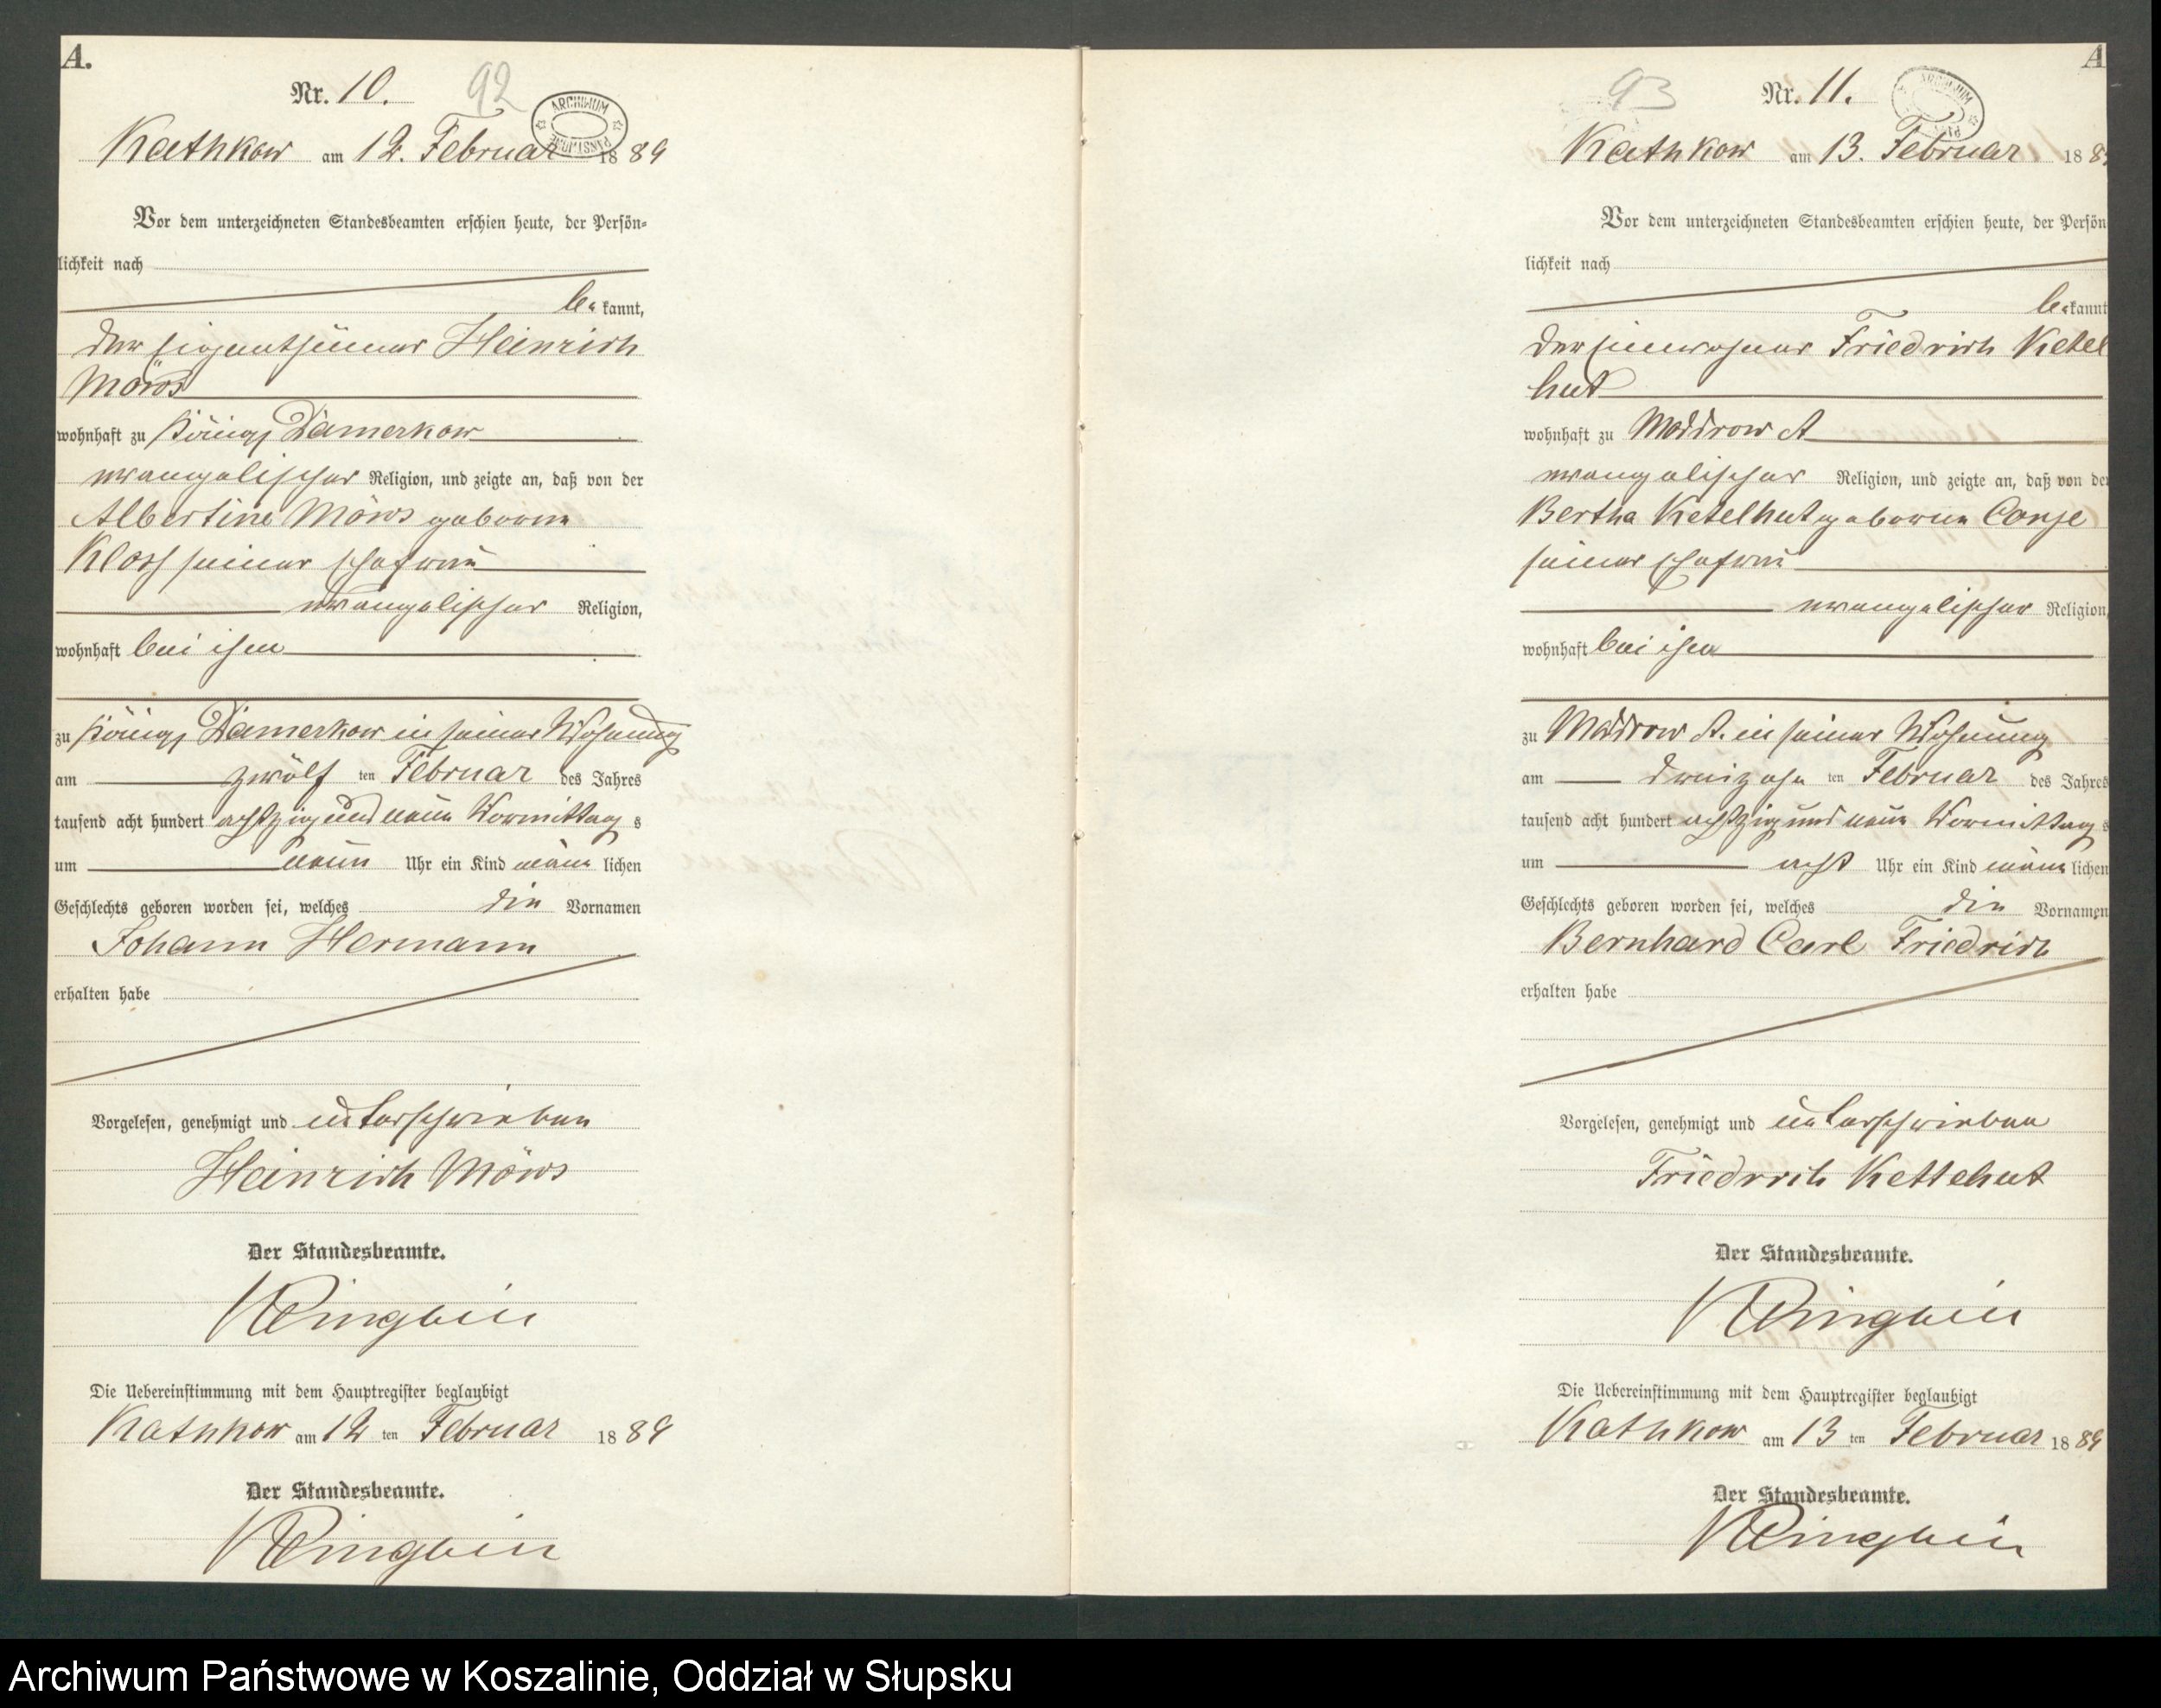 A.
Nr. 10.
92
ARCHIWUM PAŃSTWOWE
Kathkow am 12. Februar 1889
Vor dem unterzeichneten Standesbeamten erschien heute, der Persön-
lichkeit nach
be kannt,
der Eigenthümer Heinrich
Möws
wohnhaft zu Königs Damerkow
evangelischer Religion, und zeigte an, daß von der
Albertine Möws geborene
Kloss seiner Ehefrau
evangelischer Religion,
wohnhaft bei ihm
zu Königs Damerkow in seiner Wohnung
am zwölf ten Februar des Jahres
tausend acht hundert achtzig und neun Vormittag s
um neun Uhr ein Kind männ lichen
Geschlechts geboren worden sei, welches die Vornamen
Johann Hermann
erhalten habe
Vorgelesen, genehmigt und unterschrieben
Heinrich Möws
Der Standesbeamte.
Die Uebereinstimmung mit dem Hauptregister beglaubigt
Kathkow am 12 ten Februar 1889
Der Standesbeamte.
A
93
Nr. 11.
ARCHIWUM PAŃ
Kathkow am 13. Februar 188
Vor dem unterzeichneten Standesbeamten erschien heute, der Persön
lichkeit nach
be kannt
der Einwohner Friedrich Ketel
hut
wohnhaft zu Moddrow A
evangelischer Religion, und zeigte an, daß von der
Bertha Ketelhut geborene
seiner Ehefrau
evangelischer Religion,
wohnhaft bei ihm
zu Moddrow A. in seiner Wohnung
am dreizehn ten Februar des Jahres
tausend acht hundert achtzig und neun Vormittag s
um acht Uhr ein Kind männ lichen
Geschlechts geboren worden sei, welches die Vornamen
Bernhard Carl Friedrich
erhalten habe
Vorgelesen, genehmigt und unterschrieben
Friedrich Kettehut
Der Standesbeamte.
Die Uebereinstimmung mit dem Hauptregister beglaubigt
Kathkow am 13 ten Februar 1889
Der Standesbeamte.
Archiwum Państwowe w Koszalinie, Oddział w Słupsku